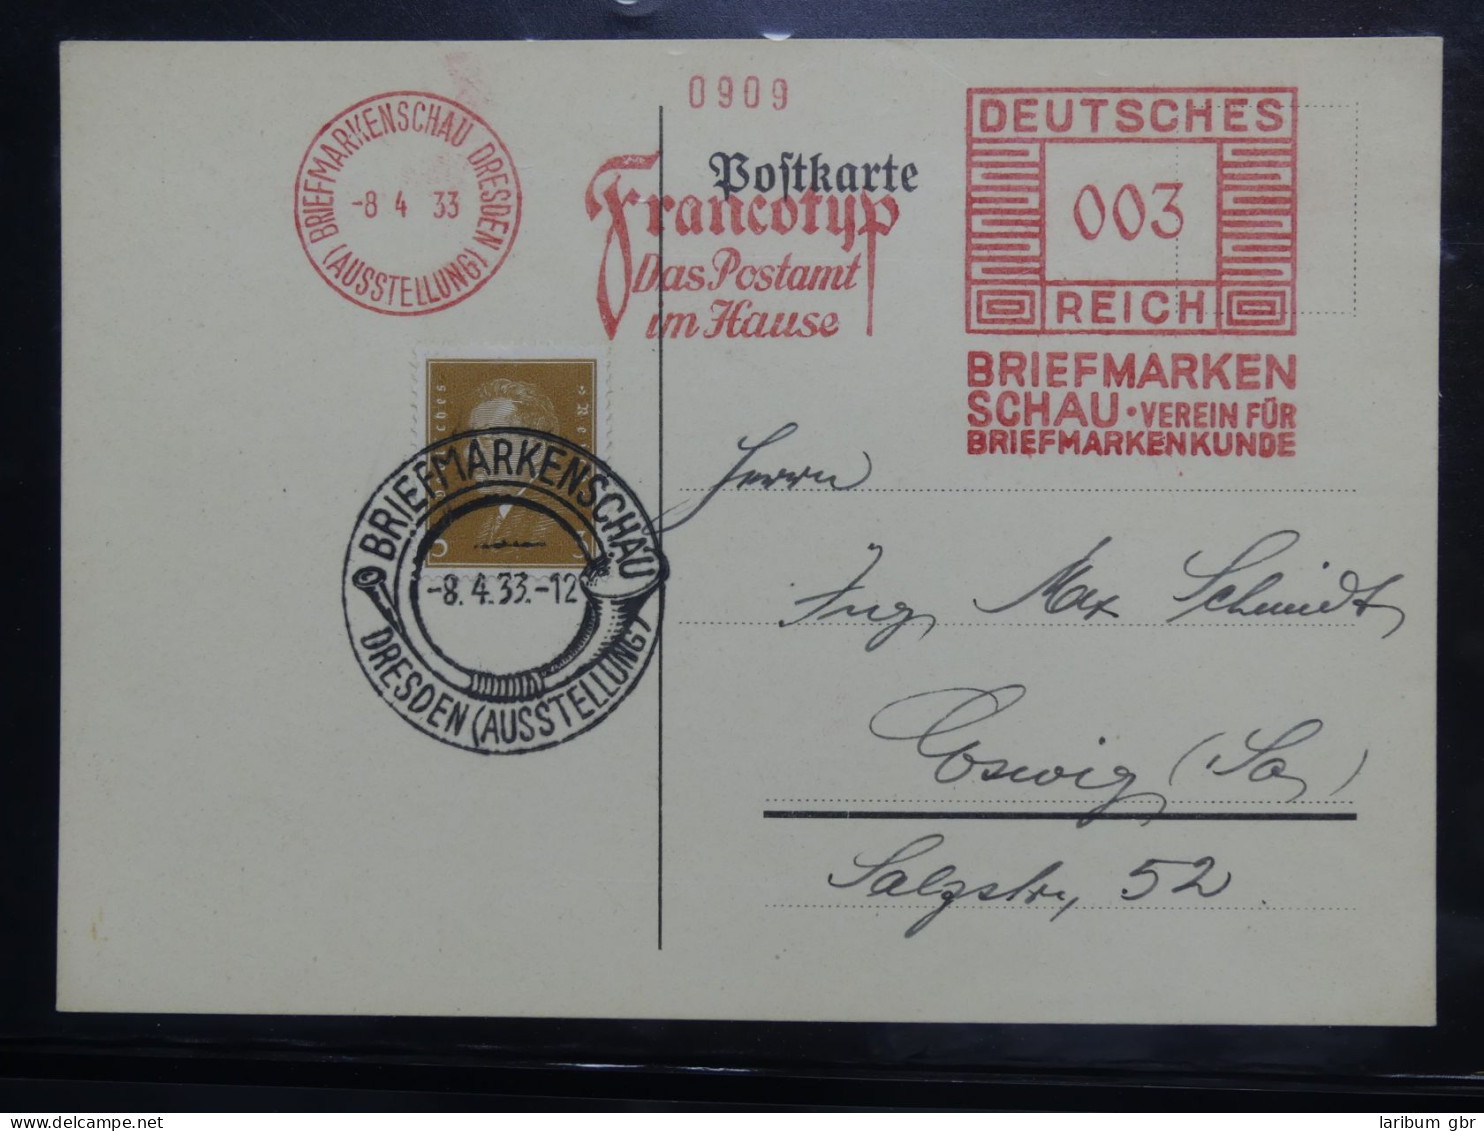 0909
BRIEFMARKENSCHAU DRESDEN
-8 4 33
(AUSSTELLUNG)
Postkarte
Francotyp
Das Postamt
im Hause
DEUTSCHES
003
REICH
BRIEFMARKEN
SCHAU · VEREIN FÜR
BRIEFMARKENKUNDE
BRIEFMARKENSCHAU
-8.4.33.-12
DRESDEN (AUSSTELLUNG)
Herrn
Ing. Max Schmidt
Coswig (Sa)
Salzstr, 52
laribum gbr